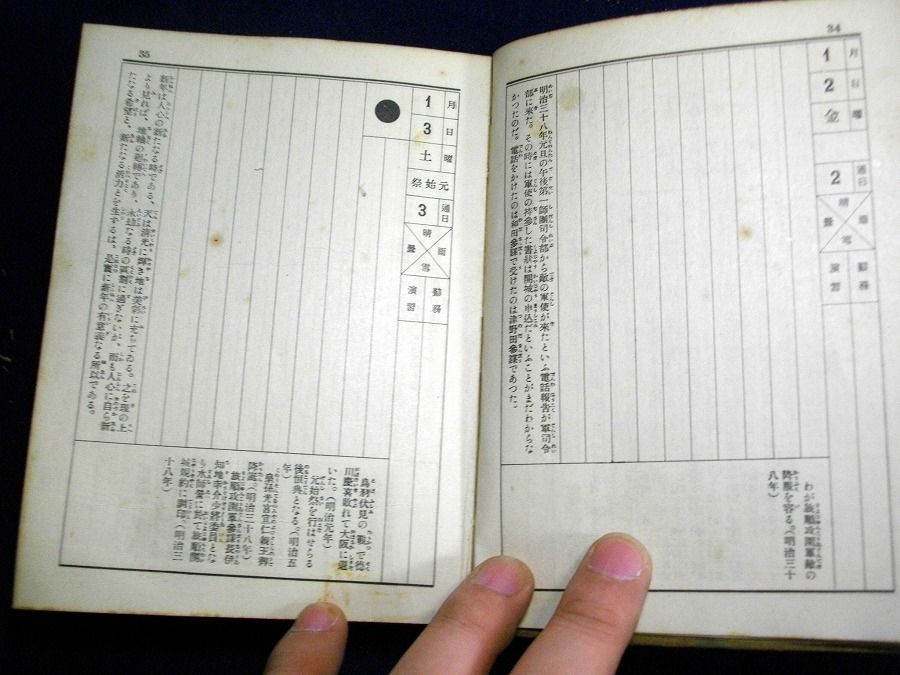 34
1月
2日
金曜
2 通日
晴 雨
曇 雪
演習 勤務
明治三十八年元旦の午後第一師團司令部から敵の軍使が來たといふ電話報告が軍司令
部に來た。その時には軍使の持參した書狀は開城の申込だといふことがまだわからな
かつたのだ。電話をかけたのは和田參謀で受けたのは津野田參謀であつた。
わが旅順攻圍軍敵の
降服を容る。(明治三十
八年)
35
1月
3日
土曜
元始祭
3 通日
晴 雨
曇 雪
演習 勤務
新年は人心の新たなる時である、天は淸光に輝き地は美彩に充ちてゐる。之を理の上
より見れば、地軸の廻轉であり、永劫なる時の區劃に過ぎないが、而も人心に自ら新
たなる希望と、新たなる活力とを生ずるは、是實に新年の有意義なる所以である。
鳥羽伏見の戰で德
川慶喜敗れて大阪に退
いた。(明治元年)
元始祭を行はせらる
後恒典となる。(明治五
年)
皇孫光宮宣仁親王御
降誕。(明治三十八年)
旅順攻圍軍參謀長伊
知地幸介少將委員とな
り水師營に於て旅順開
城規約に調印。(明治三
十八年)